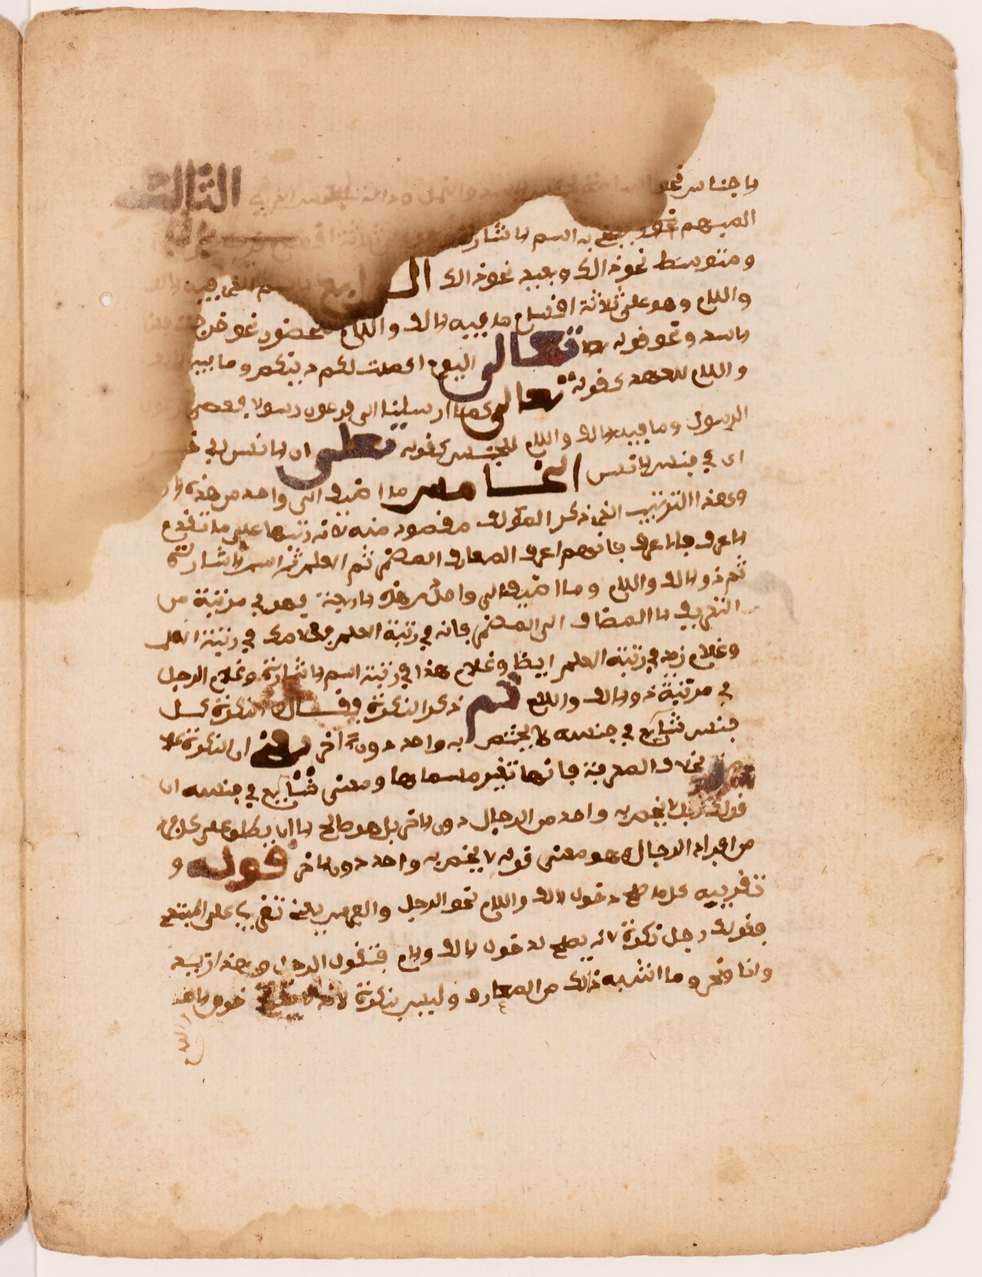 الاجناس نحو الثالث
المبهم نحو به اسم الاشارة
ومتوسط نحو ذلك وبعيد نحو ذلك الرابع الاسم الذي فيه الالف
واللام وهو على ثلاثة اقسام ما فيه الالف واللام للحضور نحو خرجت فاذا
الاسد ونحو قوله تعالى اليوم اكملت لكم دينكم وما فيه الالف
واللام للعهد كقوله تعالى كما ارسلنا الى فرعون رسولا فعصى فرعون
الرسول وما فيه الالف واللام للجنس كقوله تعلى ان الانسن لفي خسر
اي في جنس الانس الخامس ما اضيف الى واحد من هذه
وهذا الترتيب الذي ذكر المؤلف مقصود منه لانه رتبها على ما تقدم
الاعرف فالاعرف فانهم اعرف المعارف المضمر ثم العلم ثم اسم الاشارة
ثم ذو الالف واللام وما اضيف الى واحد من هذه الاربعة فهو في مرتبة من
التعريف الا المضاف الى المضمر فانه في رتبة العلم فغلامك في رتبة العلم
وغلام زيد في رتبة العلم ايضا وغلام هذا في رتبة اسم الاشارة وغلام الرجل
في مرتبة ذو الالف واللام ثم ذكر النكرة فقال النكرة كل
جنس شايع في جنسه لا يختص به واحد دون اخر يعني ان النكرة
بخلاف المعرفة فانها تغير مسماها ومعنى شايع في جنسه ان
قولك رجل لا يختص به واحد من الرجال دون الاخر بل هو صالح لان يطلق على كل
من افراد الرجال وهو معنى قوله لا يختص به واحد دون الاخر قوله و
تقريبه كل ما صلح دخول الالف واللام نحو الرجل والفرس يعني تقريب على المبتدي
فقولك رجل نكرة لانه يصلح لدخول الالف ولام فتقول الرجل
وانا ونحن وما اشبه ذلك من المعارف وليس بنكرة لانه دخول الالف